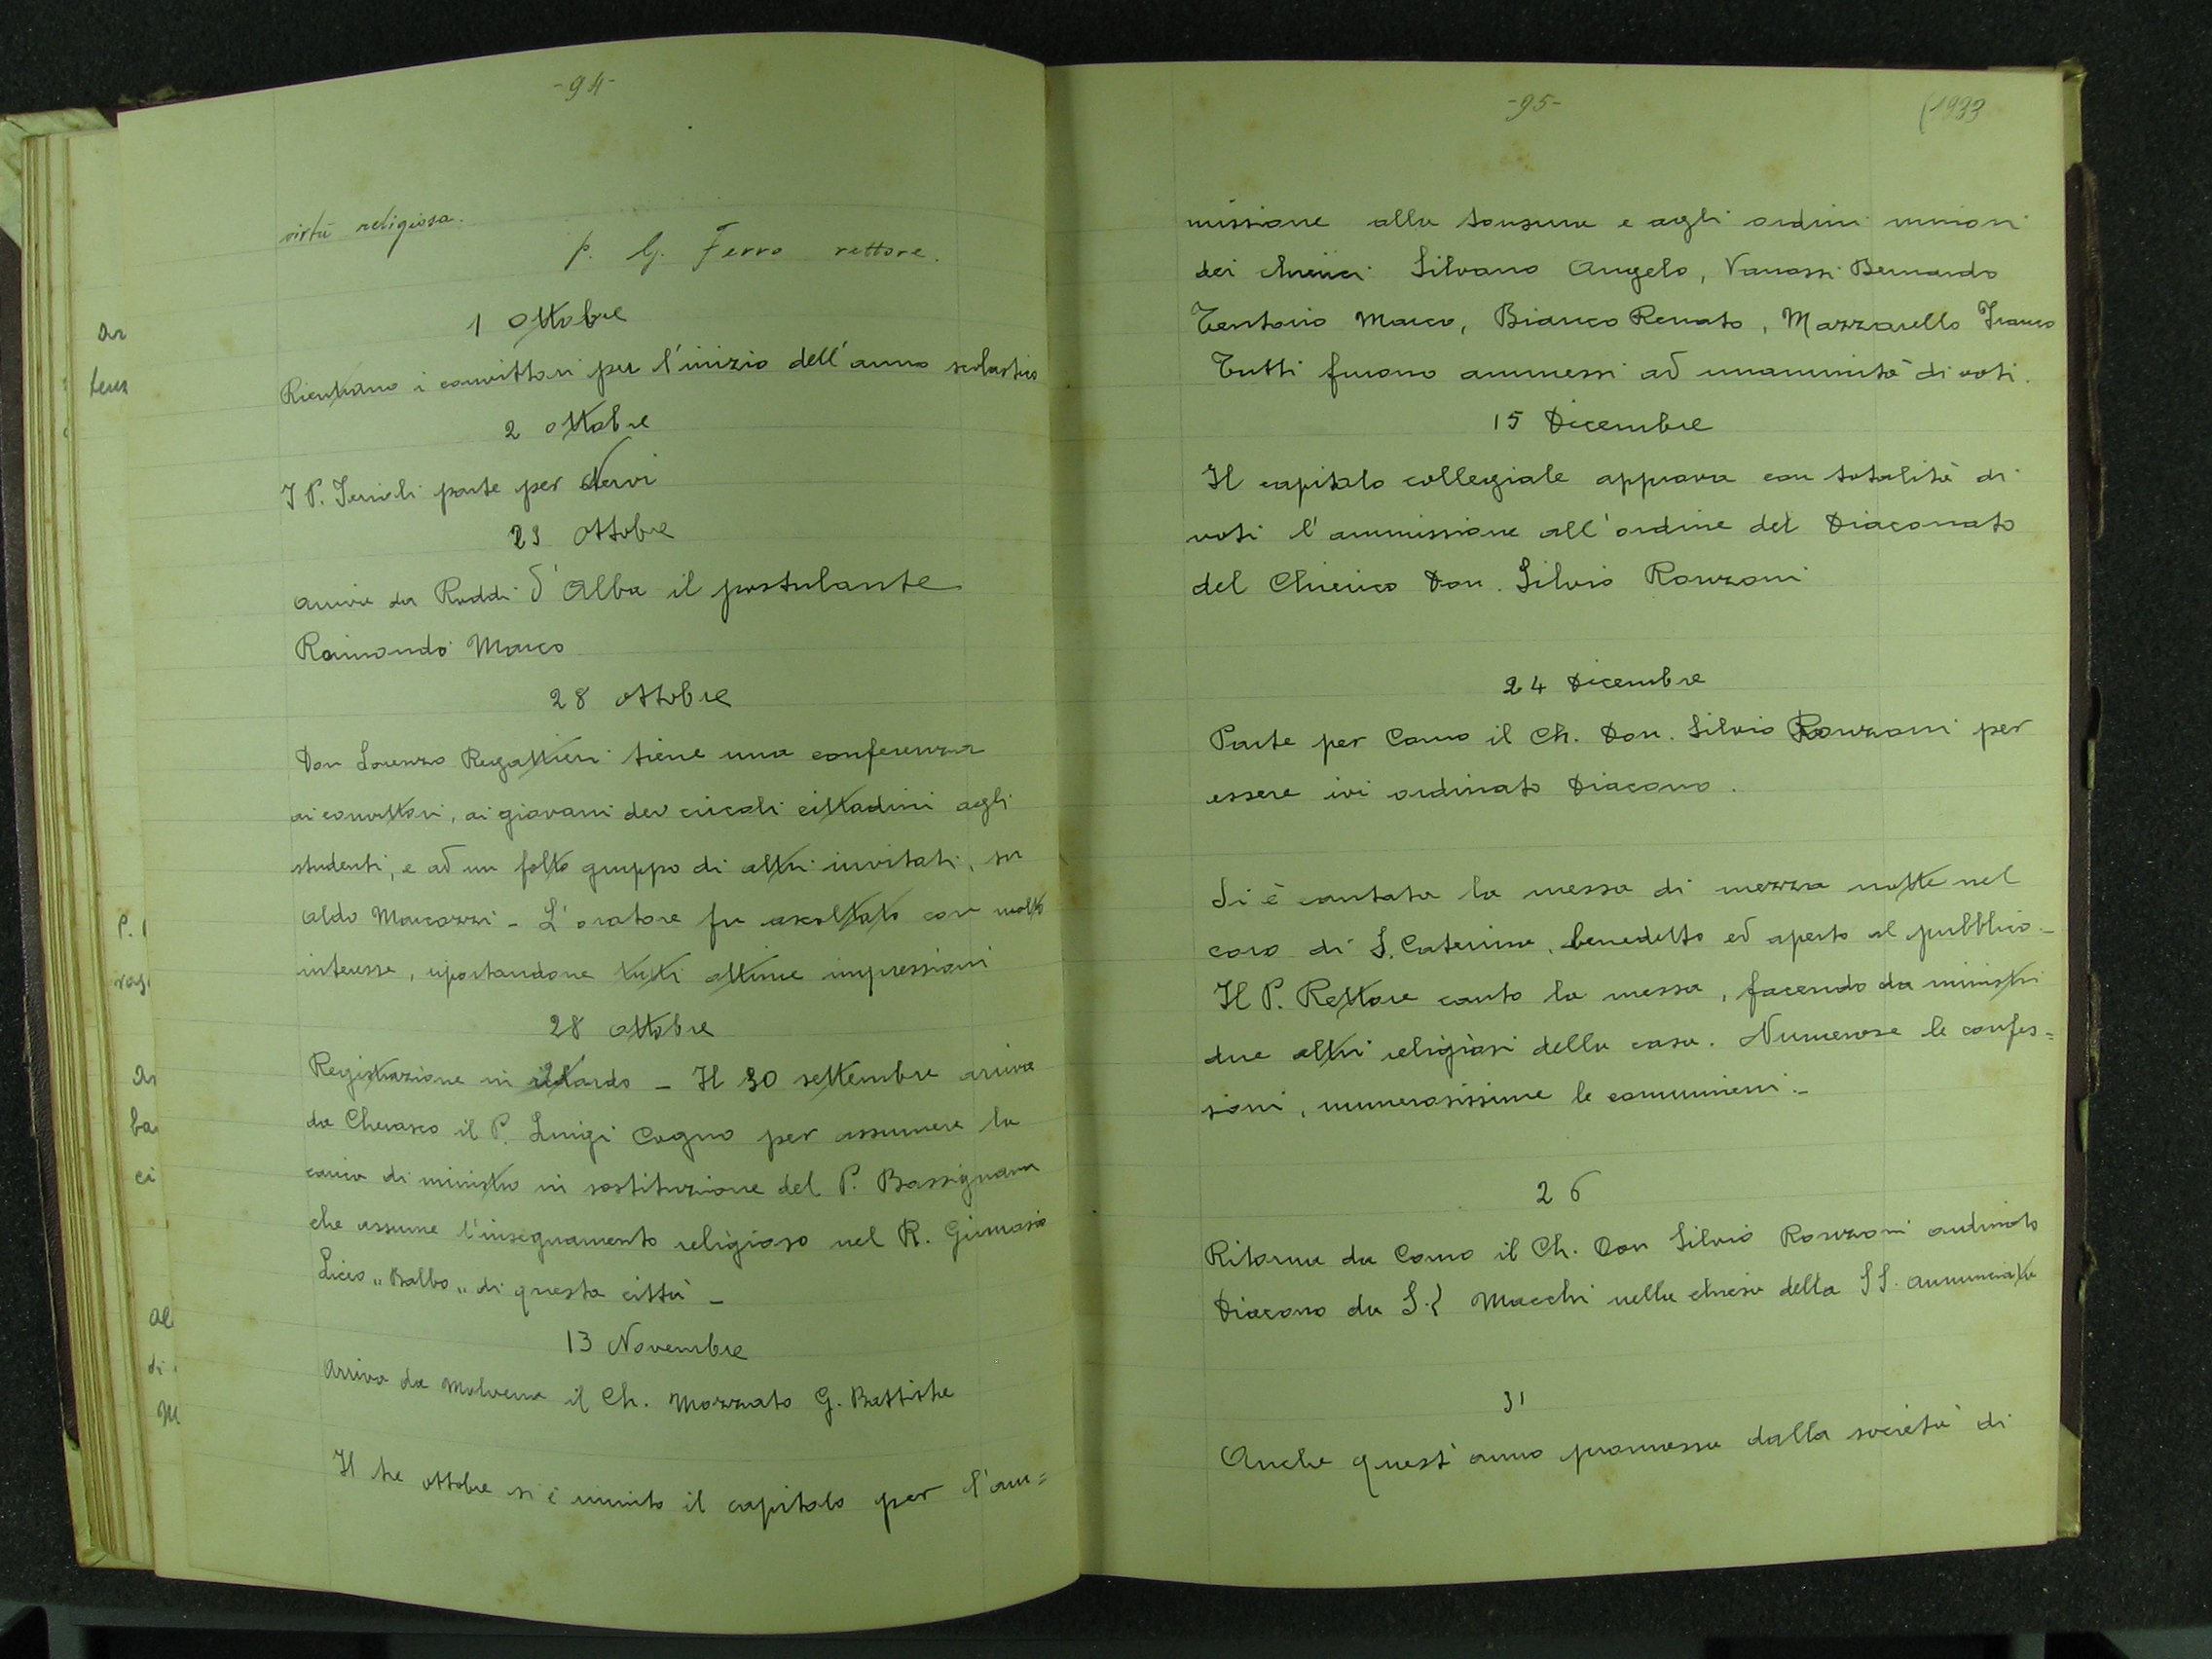 -94-
virtù religiosa.
p. G. Ferro rettore.
1 Ottobre
Rientrano i convittori per l'inizio dell'anno scolastico
2 ottobre
I P. parte per Nervi
23 ottobre
arriva da Roddi d'Alba il postulante
Raimondo Marco
28 ottobre
Don Lorenzo Regattieri tiene una conferenza
ai convittori, ai giovani dei circoli cittadini agli
studenti, e ad un folto gruppo di altri invitati, su
Aldo Marcozzi - L'oratore fu ascoltato con molto
interesse, riportandone tutti ottime impressioni
28 ottobre
Registrazione in ritardo - Il 30 settembre arriva
da Cherasco il P. Luigi Cogno per assumere la
carica di ministro in sostituzione del P. Bassignana
che assume l'insegnamento religioso nel R. Ginnasio
Liceo "Balbo" di questa città -
13 Novembre
Arriva da Molvena il Ch. Mozzato G. Battista
Il tre ottobre si è riunito il capitolo per l'am=
-95-
(1933
missione alla tonsura e agli ordini minori
dei chierici Silvano Angelo, Vanossi Bernardo
Tentorio Marco, Bianco Renato, Mazzarello Franco
Tutti furono ammessi ad unanimità di voti.
15 Dicembre
Il capitolo collegiale approva con totalità di
voti l'ammissione all'ordine del Diaconato
del Chierico Don. Silvio Ronzoni
24 Dicembre
Parte per Como il Ch. Don. Silvio Ronzoni per
essere ivi ordinato Diacono.
Si è cantata la messa di mezza notte nel
coro di S. Caterina, benedetto ed aperto al pubblico -
Il P. Rettore canto la messa, facendo da ministri
due altri religiosi della casa. Numerose le confes=
sioni, numerosissime le comunioni. -
26
Ritorna da Como il Ch. Don Silvio Ronzoni ordinato
Diacono da S. E Macchi nella chiesa della SS. Annunciata
31
Anche quest'anno promossa dalla società di